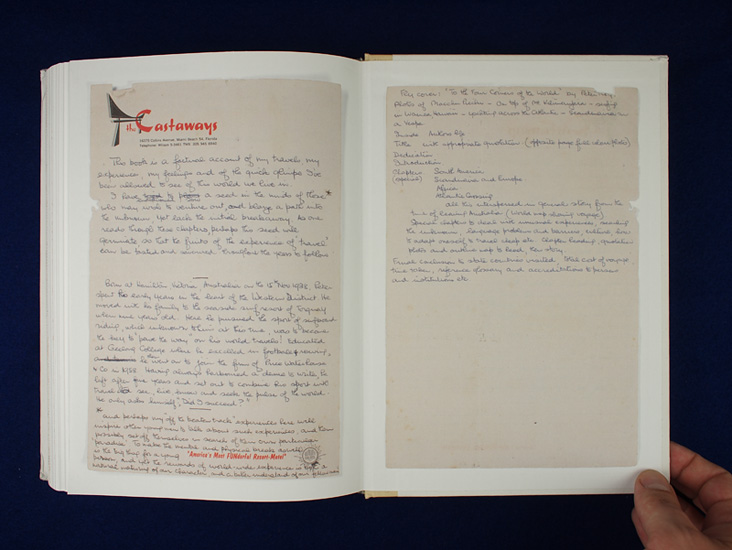 the Castaways
This book is a factual account of my travels my
experiences, my feelings and of the quick glimpse I've
been allowed to see of this world we live in.
I have a seed in the minds of those *
who may wish to venture out, and blaze a path into
the unknown. Yet lack the initial breakaway. As one
reads through these chapters perhaps this seed will
germinate so that the fruits of the experience of travel
can be tasted and throughout the years to follow
Born at Hamilton, Victoria, Australia on the 15th Nov 1938, Peter
spent the early years in the heart of the Western District. He
moved with his family to the seaside surf resort of Torquay
when nine years old. Here he pursued the sport of surfboard
riding, which unknown to him at this time, was to become
the key to "pave the way" on his world travels. Educated
at Geelong College where he excelled in football & rowing,
he then went on to join the firm of Price Waterhouse
& Co in Having always harboured a desire to write, he
left after five years and set out to combine his sport with
travel see, live know and seek the pulse of the world.
He only asks himself, "Did I succeed?"
* and perhaps my "off the beaten track" experiences here will
inspire other young men to talk about such experiences, and then
possibly set off themselves in search of their own particular
paradise. To make the mental and physical break
is the big thing for a young
"America's Most FUNderful Resort-Motel"
person, and yet the rewards of world wide experience is
natural making of one character and a better understand of
"To the Four Corners of the World" by Peter
Photo of - On top of Mt Kilimanjaro - surfing
in Hawaii - yachting across the Atlantic - in
Inside Authors life
Title with appropriate quotation (opposite page full colour photo)
Dedication
Introduction
Chapters South America
Scandinavia and Europe
Africa
Atlantic Crossing
all this interspersed in general story from the
time of leaving Australia (World map showing voyage)
Special chapters to deal with unusual experiences,
the unknown, language problem and barriers, how
to adapt oneself to travel cheap etc. Chapter heading, quotation
photo and outline map to head, then story.
Final conclusion to state countries visited. Total cost of voyage,
time taken, reference glossary and accreditations to persons
and institutions etc.